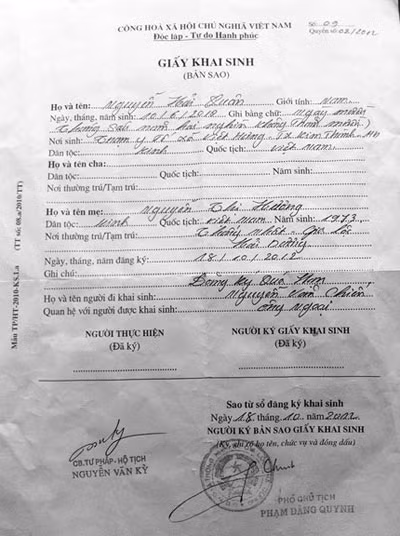 CỘNG HOÀ XÃ HỘI CHỦ NGHĨA VIỆT NAM
Độc lập - Tự do Hạnh phúc
Số: 09
Quyển số: 02/2012
GIẤY KHAI SINH
(BẢN SAO)
Họ và tên: Nguyễn Hải Quân Giới tính: Nam
Ngày, tháng, năm sinh: 10/6/2012 Ghi bằng chữ: Ngày mười
tháng sáu năm hai nghìn không trăm mười
Nơi sinh: Trạm y tế xã Việt Hưng
Dân tộc: Kinh Quốc tịch: Việt nam
Họ và tên cha:
Dân tộc: Quốc tịch: Năm sinh:
Nơi thường trú/Tạm trú:
Họ và tên mẹ: Nguyễn Thị Hường
Dân tộc: Kinh Quốc tịch: Việt nam Năm sinh: 1973
Nơi thường trú/Tạm trú: Thống nhất - Gia Lộc
Hải Dương
Ngày, tháng, năm đăng ký: 18/10/2012
Ghi chú: Đăng ký Quá Hạn
Họ và tên người đi khai sinh: Nguyễn Chiến
Quan hệ với người được khai sinh: ông ngoại
NGƯỜI THỰC HIỆN
(Đã ký)
NGƯỜI KÝ GIẤY KHAI SINH
(Đã ký)
Sao từ sổ đăng ký khai sinh
Ngày 18 tháng 10 năm 2012
NGƯỜI KÝ BẢN SAO GIẤY KHAI SINH
(Ký, ghi rõ họ tên, chức vụ và đóng dấu)
CB.TƯ PHÁP - HỘ TỊCH
NGUYỄN VĂN KỲ
PHÓ CHỦ TỊCH
PHẠM ĐĂNG QUỲNH
Mẫu TP/HT-2010-KS.1.a (TT số: 08.a/2010/TT)